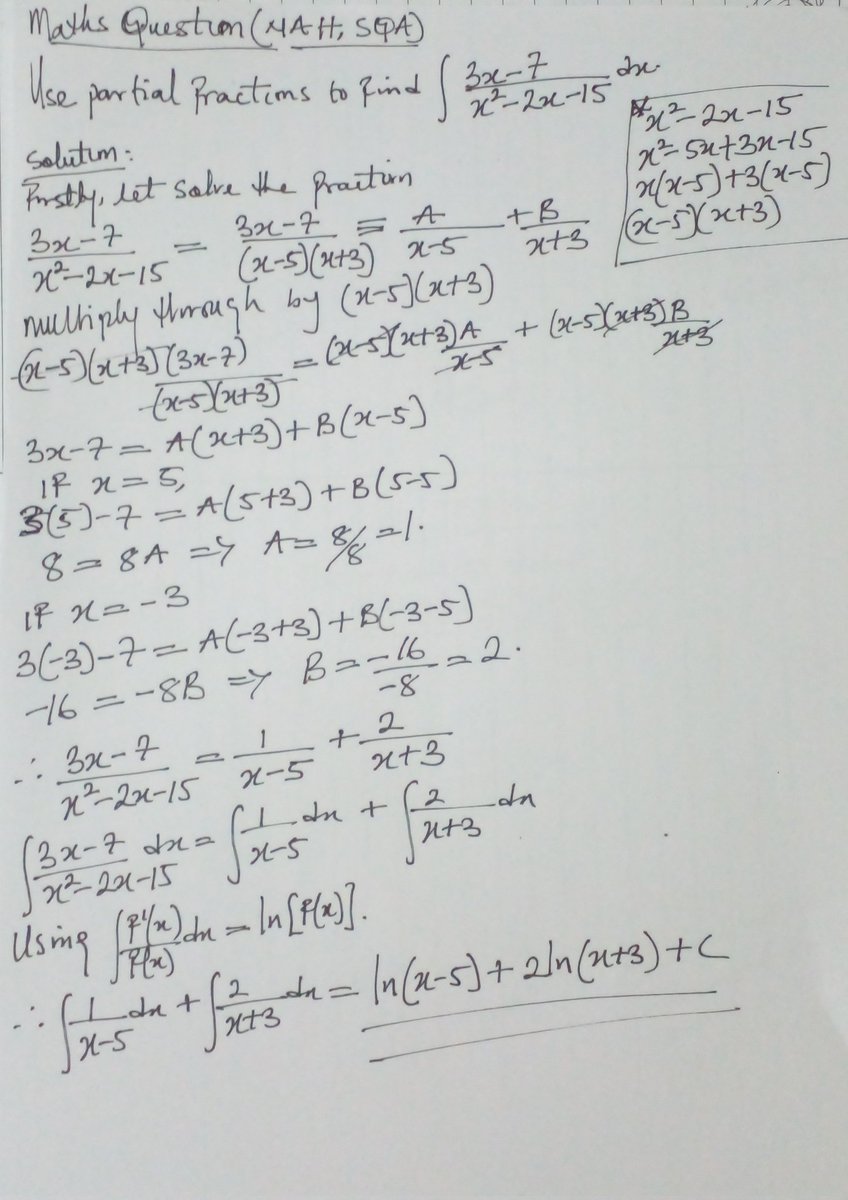 Maths Question (NAH, SQA)
Use partial fractions to find ∫ (3x-7)/(x²-2x-15) dx.
* x²-2x-15
x²-5x+3x-15
x(x-5)+3(x-5)
(x-5)(x+3)
Solution:
Firstly, let solve the fraction
(3x-7)/(x²-2x-15) = (3x-7)/((x-5)(x+3)) ≡ A/(x-5) + B/(x+3)
multiply through by (x-5)(x+3)
(x-5)(x+3)(3x-7)/((x-5)(x+3)) = (x-5)(x+3)A/(x-5) + (x-5)(x+3)B/(x+3)
3x-7 = A(x+3)+B(x-5)
if x=5,
3(5)-7 = A(5+3)+B(5-5)
8=8A => A=8/8=1.
if x=-3
3(-3)-7 = A(-3+3)+B(-3-5)
-16=-8B => B=-16/-8=2.
∴ (3x-7)/(x²-2x-15) = 1/(x-5) + 2/(x+3)
∫ (3x-7)/(x²-2x-15) dx = ∫ 1/(x-5) dx + ∫ 2/(x+3) dx
Using ∫ f'(x)/f(x) dx = ln[f(x)].
∴ ∫ 1/(x-5) dx + ∫ 2/(x+3) dx = ln(x-5)+2ln(x+3)+C